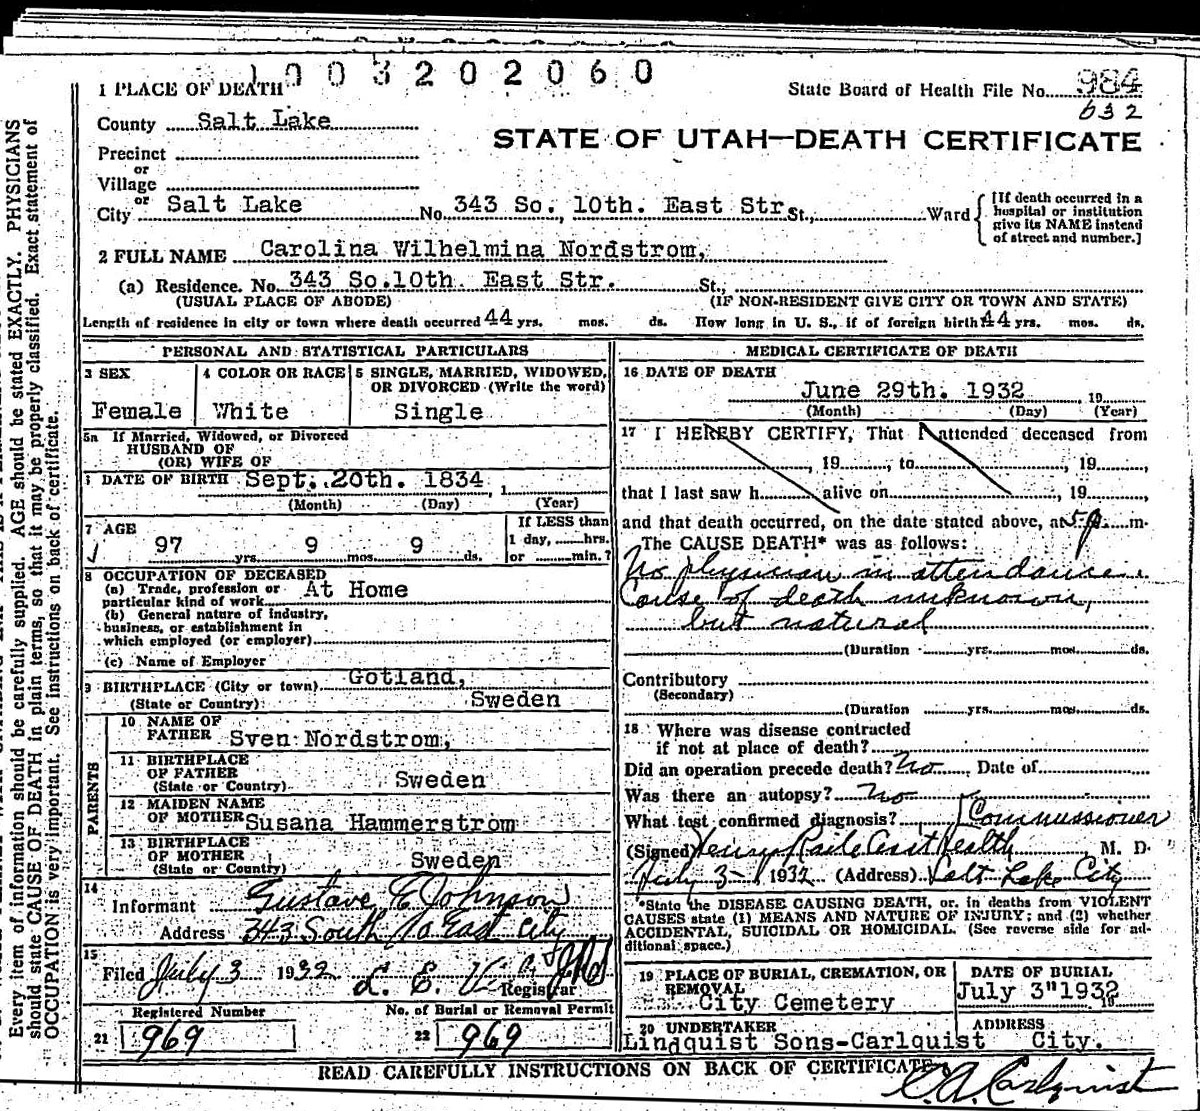 1003202060
1 PLACE OF DEATH
State Board of Health File No. 984
632
County Salt Lake
STATE OF UTAH—DEATH CERTIFICATE
Precinct
or
Village
or
City Salt Lake No. 343 So. 10th. East Str St., Ward
[If death occurred in a
hospital or institution
give its NAME instead
of street and number.]
2 FULL NAME Carolina Wilhelmina Nordstrom,
(a) Residence. No. 343 So.10th. East Str. St.,
(USUAL PLACE OF ABODE) (IF NON-RESIDENT GIVE CITY OR TOWN AND STATE)
Length of residence in city or town where death occurred 44 yrs. mos. ds. How long in U. S., if of foreign birth 44 yrs. mos. ds.
PERSONAL AND STATISTICAL PARTICULARS
3 SEX
Female
4 COLOR OR RACE
White
5 SINGLE, MARRIED, WIDOWED,
OR DIVORCED (Write the word)
Single
5a If Married, Widowed, or Divorced
HUSBAND OF
(OR) WIFE OF
DATE OF BIRTH Sept. 20th. 1834, 1
(Month) (Day) (Year)
7 AGE
97 yrs. 9 mos. 9 ds.
If LESS than
1 day, hrs.
or min.?
8 OCCUPATION OF DECEASED
(a) Trade, profession or
particular kind of work At Home
(b) General nature of industry,
business, or establishment in
which employed (or employer)
(c) Name of Employer
9 BIRTHPLACE (City or town) Gotland,
(State or Country) Sweden
PARENTS
10 NAME OF
FATHER Sven Nordstrom,
11 BIRTHPLACE
OF FATHER
(State or Country) Sweden
12 MAIDEN NAME
OF MOTHER Susana Hammerstrom
13 BIRTHPLACE
OF MOTHER
(State or Country) Sweden
14
Informant Gustave E Johnson
Address 343 South 10 East City
15
Filed July 3 1932 L. E. Registrar
Registered Number
21 969
No. of Burial or Removal Permit
22 969
MEDICAL CERTIFICATE OF DEATH
16 DATE OF DEATH
June 29th. 1932 19
(Month) (Day) (Year)
17 I HEREBY CERTIFY, That I attended deceased from
, 19, to , 19,
that I last saw h alive on , 19,
and that death occurred, on the date stated above, at 5 p. m.
The CAUSE DEATH* was as follows:
No physician in attendance.
Cause of death unknown,
but natural
(Duration yrs. mos. ds.
Contributory
(Secondary)
(Duration yrs. mos. ds.
18 Where was disease contracted
if not at place of death?
Did an operation precede death? No Date of
Was there an autopsy? No
What test confirmed diagnosis? Commissioner
(Signed) Henry Raile Asst Health M. D.
July 3 1932 (Address) Salt Lake City
*State the DISEASE CAUSING DEATH, or, in deaths from VIOLENT
CAUSES state (1) MEANS AND NATURE OF INJURY; and (2) whether
ACCIDENTAL, SUICIDAL OR HOMICIDAL. (See reverse side for ad-
ditional space.)
19 PLACE OF BURIAL, CREMATION, OR
REMOVAL
City Cemetery
DATE OF BURIAL
July 3" 1932 19
20 UNDERTAKER
Lindquist Sons-Carlquist
ADDRESS
City.
READ CAREFULLY INSTRUCTIONS ON BACK OF CERTIFICATE.
C. A. Carlquist
Every item of information should be carefully supplied. AGE should be stated EXACTLY. PHYSICIANS
should state CAUSE OF DEATH in plain terms, so that it may be properly classified. Exact statement of
OCCUPATION is very important. See instructions on back of certificate.